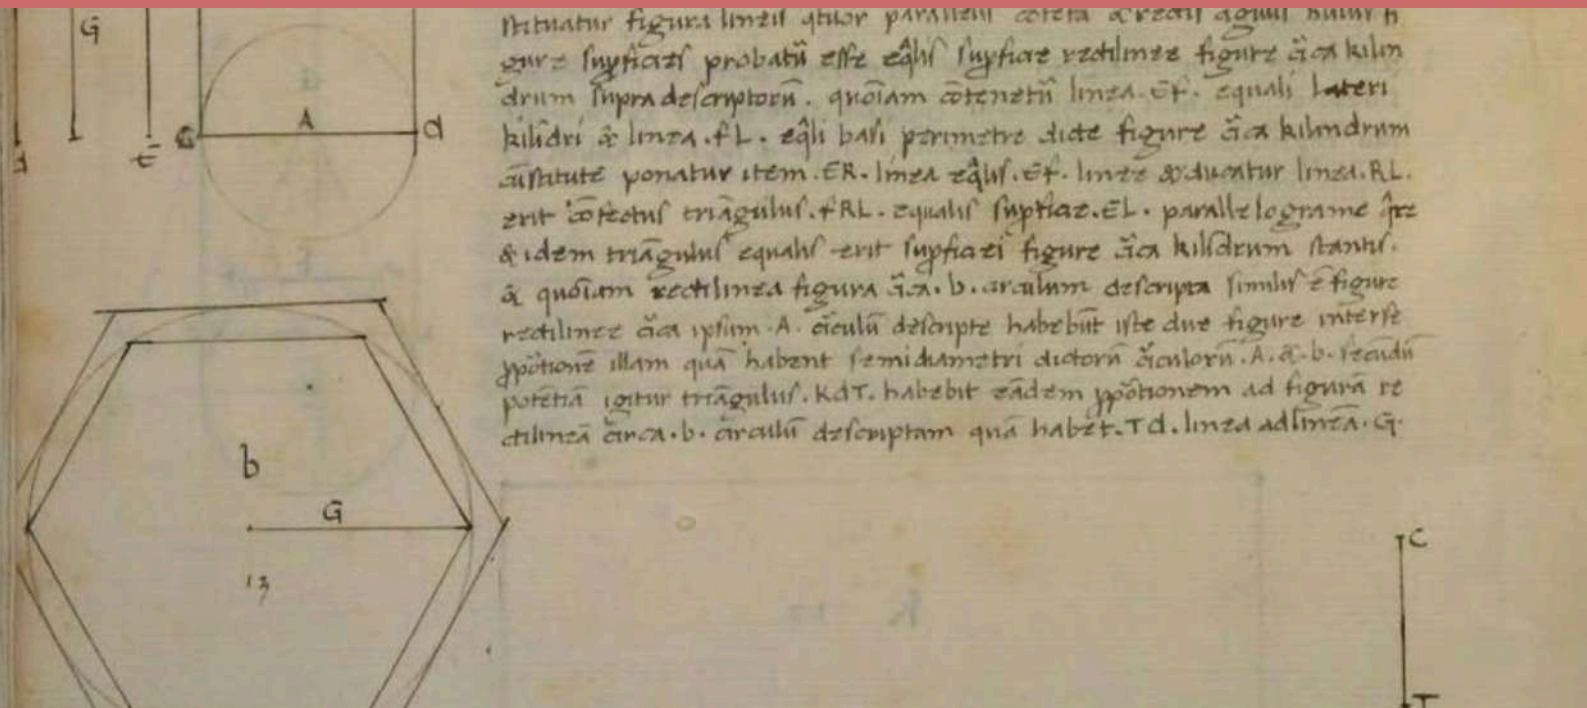 stituatur figura lineis qtuor
gure supficies probatū esse eq̄lis supficiei rectilinee figure c̄ica kilin
drum supra descriptorū. quoīam cōtenetū linea. EF. equali lateri
kilīdri & linea. fL. eq̄li basi perimetre dicte figure c̄ica kilindrum
cūstitute ponatur item. ER. linea eq̄lis. EF. linee & ducatur linea. RL.
erit cōfectus triāgulus. fRL. equalis supficiei. EL. parallelograme q̄re
& idem triāgulus equalis erit supficiei figure c̄ica kilīdrum stantis.
& quoīam rectilinea figura c̄ica. b. circulum descripta similis ē figure
rectilinee c̄ica ipsum. A. c̄iculū descripte habebūt iste due figure interse
ꝓpōtionē illam quā habent semidiametri dictorū c̄iculorū. A. &. b. secūdū
potētiā igitur triāgulus. KdT. habebit eādem ꝓpōtionem ad figurā re
ctilineā circa. b. circulū descriptam quā habet. Td. linea ad lineā. G.
G
A
d
b
G
13
C
T